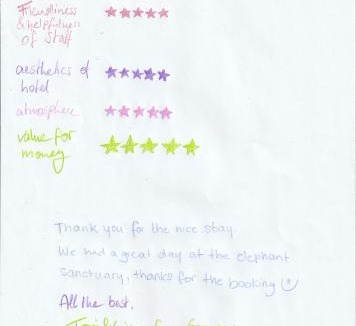 Friendliness
& helpfulness
of staff
aesthetics of
hotel
atmosphere
value for
money
Thank you for the nice stay.
We had a great day at the elephant
sanctuary, thanks for the booking
All the best,